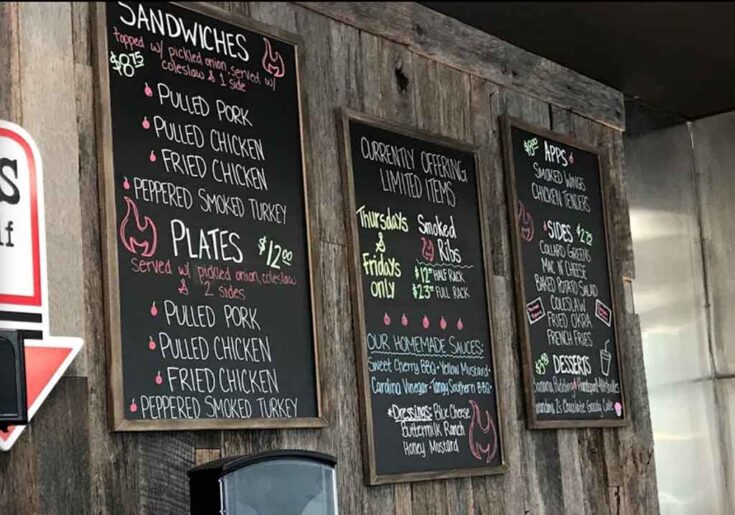 SANDWICHES
topped w/ pickled onion, served w/
coleslaw & 1 side
$8.75
PULLED PORK
PULLED CHICKEN
FRIED CHICKEN
PEPPERED SMOKED TURKEY
PLATES
$12.00
Served w/ pickled onion, coleslaw
& 2 sides
PULLED PORK
PULLED CHICKEN
FRIED CHICKEN
PEPPERED SMOKED TURKEY
CURRENTLY OFFERING
LIMITED ITEMS
Thursdays
&
Fridays
only
Smoked
Ribs
$12 HALF RACK
$23 FULL RACK
OUR HOMEMADE SAUCES:
Sweet Cherry BBQ • Yellow Mustard
Carolina Vinegar • Tangy Southern BBQ
Dressings: Blue Cheese
Buttermilk Ranch
Honey Mustard
APPS
SMOKED WINGS
CHICKEN TENDERS
SIDES
COLLARD GREENS
MAC N CHEESE
BAKED POTATO SALAD
COLESLAW
FRIED OKRA
FRENCH FRIES
DESSERTS
Banana Pudding
Chocolate
Cake
S
lf